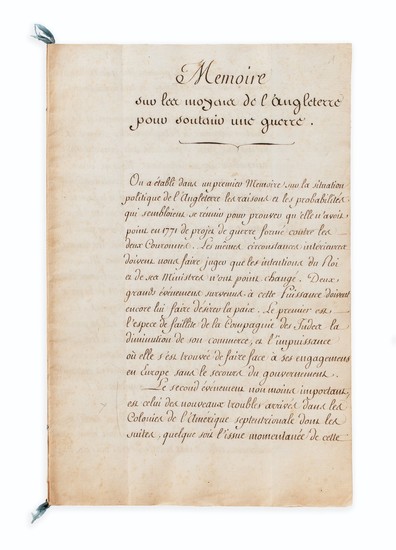 Memoire
sur les moyens de l'Angleterre
pour soutenir une guerre.
On a établi dans un premier Memoire sur la situation
politique de l'Angleterre les raisons et les probabilités
qui sembloient se réunir pour prouver qu'elle n'avoit
point en 1771 de projet de guerre formé contre les
deux Couronnes. Les mêmes circonstances interieures
doivent nous faire juger que les intentions du Roi
et de ses Ministres n'ont point changé. Deux
grands événement survenus à cette Puissance doivent
encore lui faire désirer la paix. Le premier est
l'espece de faillite de la Compagnie des Indes la
diminution de son commerce, et l'impuissance
où elle s'est trouvée de faire face à ses engagemens
en Europe sans le secours du gouvernement.
Le second événement non moins important,
est celui des nouveaux troubles arrivés dans les
Colonies de l'Amérique septentrionale dont les
suites, quelque soit l'issue momentanée de cette